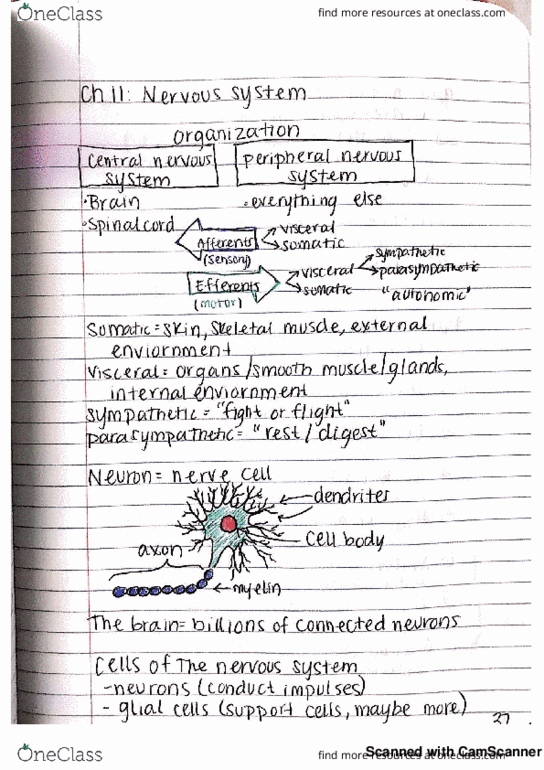 OneClass
find more resources at oneclass.com
Ch 11: Nervous system
organization
central nervous system
peripheral nervous system
·Brain
·everything else
·Spinal cord
Afferents
(sensory)
visceral
somatic
Efferents
(motor)
visceral
somatic
sympathetic
parasympathetic
"autonomic"
Somatic = skin, skeletal muscle, external
enviornment
Visceral = organs/smooth muscle/glands,
internal enviornment
sympathetic = "fight or flight"
parasympathetic = "rest/digest"
Neuron = nerve cell
dendrites
cell body
axon
myelin
The brain = billions of connected neurons
Cells of The nervous system
-neurons (conduct impulses)
- glial cells (support cells, maybe more)
27
OneClass
find more resources at oneclass.com
Scanned with CamScanner